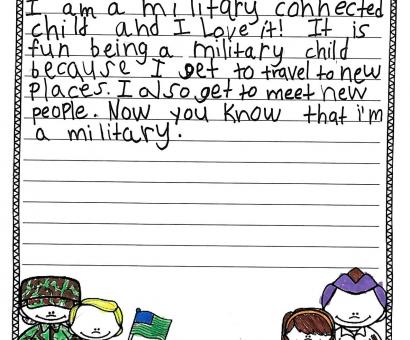 I am a military connected
child and I Love it! It is
fun being a military child
because I get to travel to new
places. I also get to meet new
people. Now you know that i'm
a military.